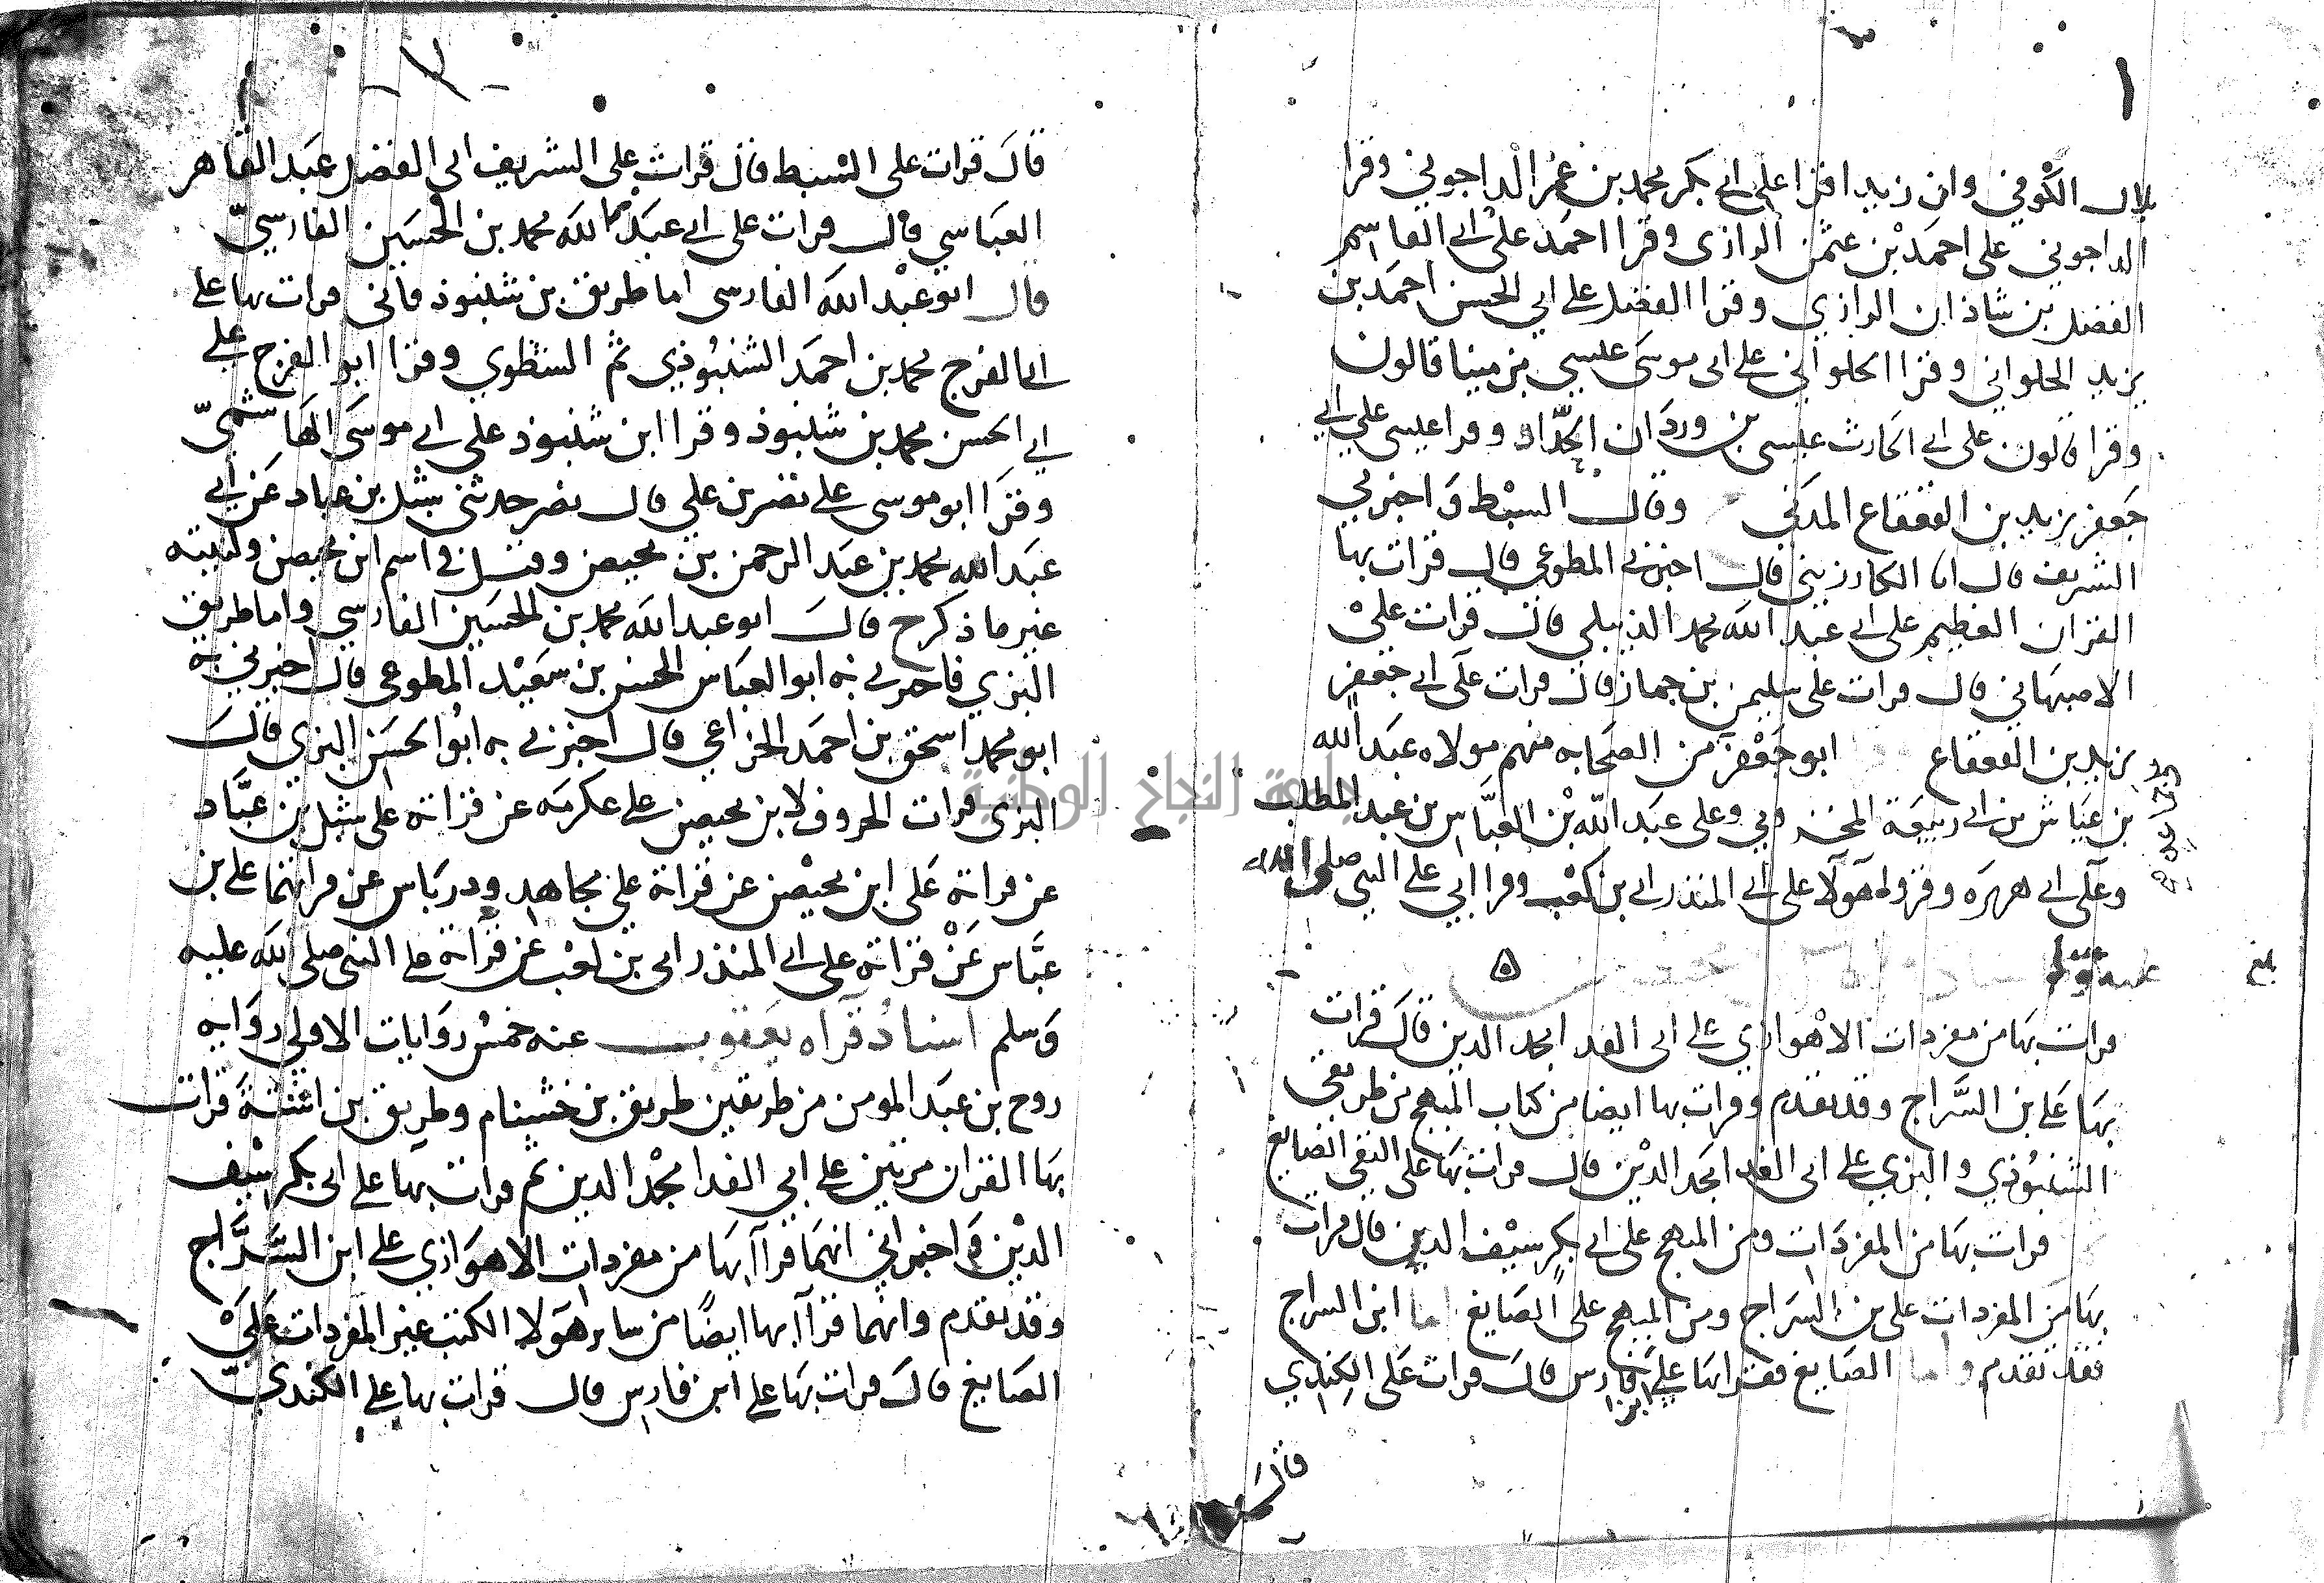 ١
بلال الكوفي وابن زيد اقرا على ابي بكر محمد بن عمر الداجوني وقرا
الداجوني على احمد بن عثمن الرازي وقرا احمد على ابي القاسم
الفضل بن شاذان الرازي وقرا الفضل على ابي الحسن احمد بن
يزيد الحلواني وقرا الحلواني على ابي موسى عيسى بن مينا قالون
وقرا قالون على ابي الحارث عيسى بن وردان الحذاء وقرا عيسى على ابي
جعفر يزيد بن القعقاع المدني وقال السبط واخبرني
الشريف قال انا الكارزيني قال اخبرني المطوعي قال قرات بها
القران العظيم على ابي عبد الله محمد الديبلي قال قرات على
الاصبهاني قال قرات على سليمن بن جماز قال قرات على ابي جعفر
يزيد بن القعقاع ابو جعفر من الصحابه منهم مولاه عبد الله
بن عياش بن ابي ربيعة المخزومي وعلى عبد الله بن العباس بن عبد المطلب
وعلى ابي هريره وقرا هولا على ابي المنذر ابي بن كعب وقرا ابي على النبي صلى الله
عليه وسلم
بلغ
قرات بها من مفردات الاهوازي على ابي الفدا مجد الدين قال قرات
بها على بن السراج وقد تقدم وقرات بها ايضا من كتاب المبهج من طريقي
الشنبوذي والبزي على ابي الفدا مجد الدين قال قرات بها على التقي الصايغ
قرات بها من المفردات ومن المبهج على ابي بكر سيف الدين قال قرات
بها من المفردات على بن السراج ومن المبهج على الصايغ اما ابن السراج
فقد تقدم واما الصايغ فقرا بها على ابن فارس قال قرات على الكندي
قال
٢
قال قرات على السبط قال قرات على الشريف ابي الفضل عبد القاهر
العباسي قال قرات على ابي عبد الله محمد بن الحسين الفارسي
قال ابو عبد الله الفارسي اما طريق بن شنبوذ فاني قرات بها على
ابي الفرج محمد بن احمد الشنبوذي ثم الشطوي وقرا ابو الفرج على
ابي الحسن محمد بن شنبوذ وقرا ابن شنبوذ على ابي موسى الهاشمي
وقرا ابو موسى على نصر بن علي قال نصر حدثني شبل بن عباد عن ابي
عبد الله محمد بن عبد الرحمن بن محيصن وقيل في اسم ابن محيصن وكنيته
غير ما ذكر ح قال ابو عبد الله محمد بن الحسين الفارسي واما طريق
البزي فاخبرني به ابو العباس الحسن بن سعيد المطوعي قال اخبرني به
ابو محمد اسحق بن احمد الخزاعي قال اخبرني به ابو الحسن البزي قال
البزي قرات الحروف لابن محيصن على عكرمه عن قراته على شبل بن عباد
عن قراته على ابن محيصن عن قراته على مجاهد ودرباس عن قراتهما على بن
عباس عن قراته على ابي المنذر ابي بن كعب عن قراته على النبي صلى الله عليه
وسلم اسناد قراه يعقوب عنه خمس روايات الاولى روايه
روح بن عبد المومن من طريقين طريق بن خشنام وطريق بن اشتة قرات
بها القران مرتين على ابي الفدا مجد الدين ثم قرات بها على ابي بكر سيف
الدين واخبراني انهما قرآ بها من مفردات الاهوازي على ابن السراج
وقد تقدم وانهما قرآ بها ايضا من ساير هولا الكتب غير المفردات على
الصايغ قال قرات بها على ابن فارس قال قرات بها على الكندي
جامعة النجاح الوطنية